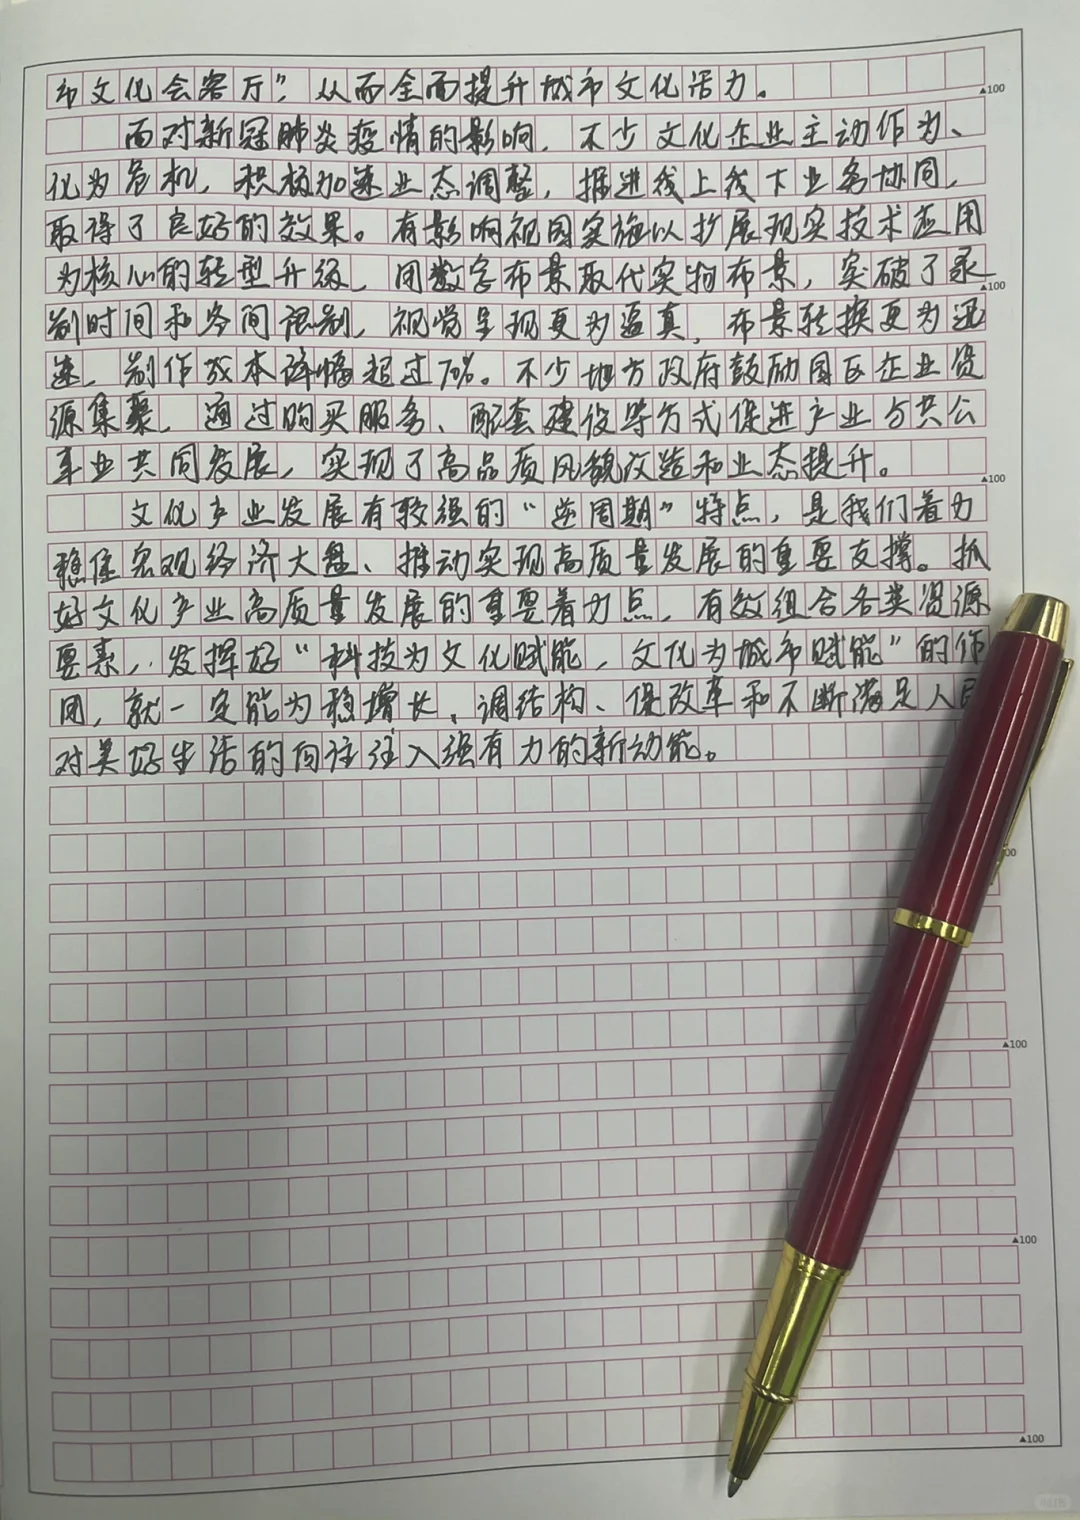 市文化会客厅”，从而全面提升城市文化活力。
▲100
面对新冠肺炎疫情的影响，不少文化企业主动作为、
化为危机，积极加速业态调整，推进线上线下业务协同，
取得了良好的效果。有影响视园实施以扩展现实技术应用
为核心的转型升级，用数字布景取代实物布景，突破了录
▲100
制时间和空间限制，视觉呈现更为逼真，布景转换更为迅
速，制作成本降幅超过70%。不少地方政府鼓励园区企业资
源集聚，通过购买服务、配套建设等方式促进产业与共公
事业共同发展，实现了高品质风貌改造和业态提升。
▲100
文化产业发展有较强的“逆周期”特点，是我们着力
稳住宏观经济大盘、推动实现高质量发展的重要支撑。抓
好文化产业高质量发展的重要着力点，有效组合各类资源
要素，发挥好“科技为文化赋能，文化为城市赋能”的作
用，就一定能为稳增长、调结构、促改革和不断满足人民
对美好生活的向往注入强有力的新动能。
▲100
▲100
▲100